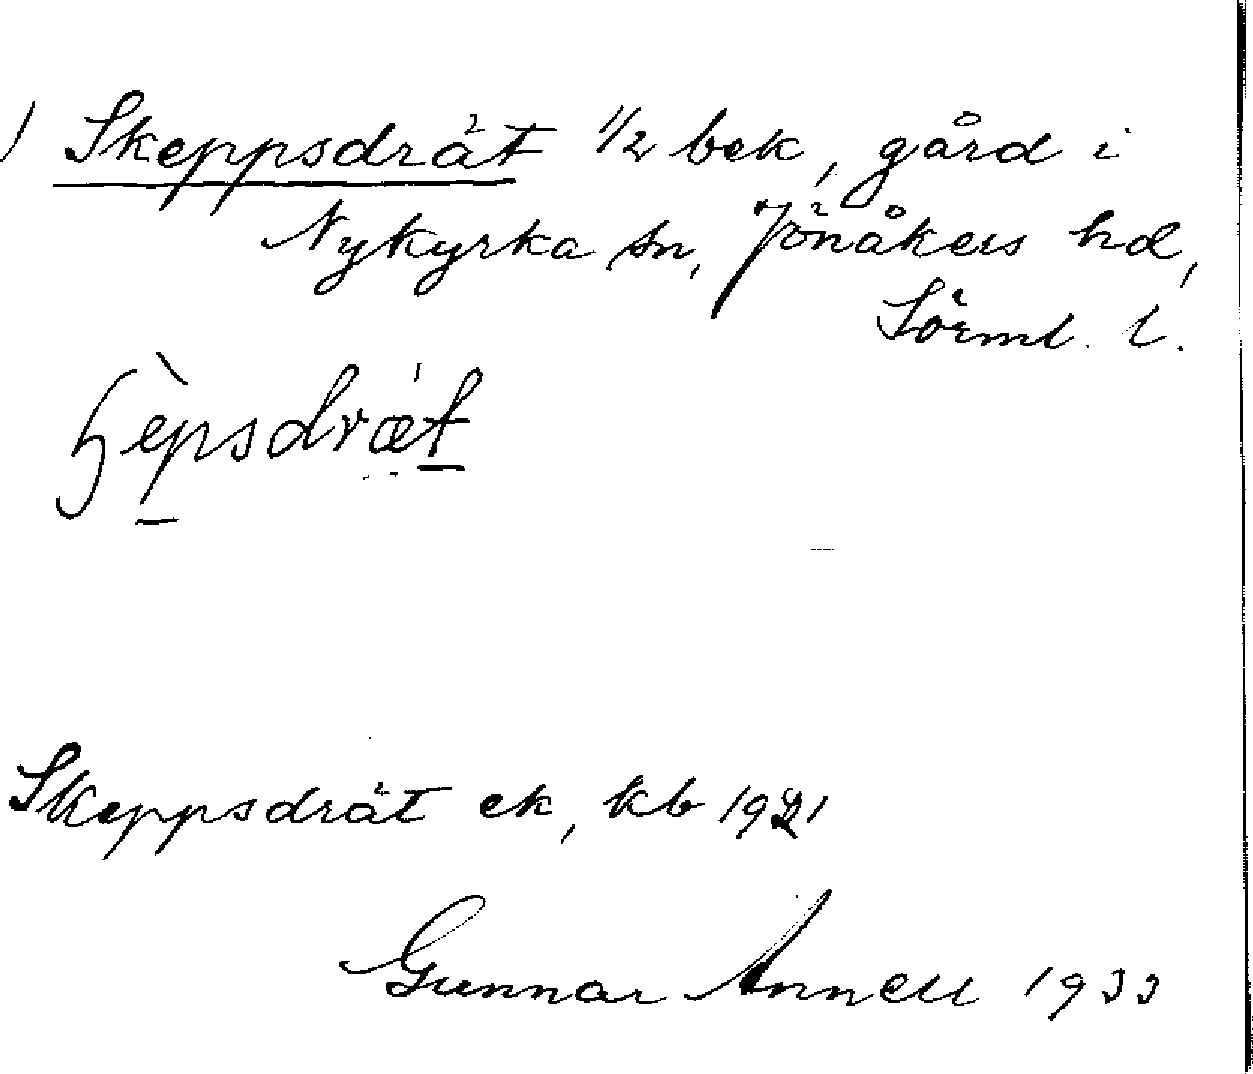 ) Skeppsdrät 1/2 bek, gård i
Nykyrka sn, Jönåkers hd,
Sörml. l.
Skeppsdrät ek, kb 1921
Gunnar Annell 1933